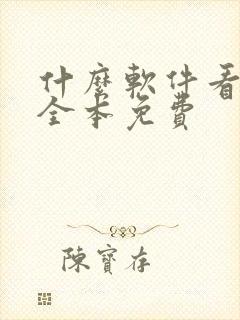 什麼軟件看
全本免費
陳寶存